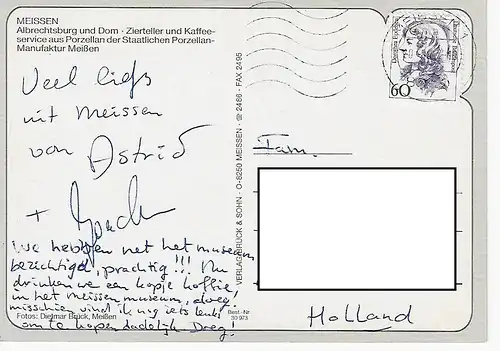 MEISSEN
Albrechtsburg und Dom · Zierteller und Kaffee-
service aus Porzellan der Staatlichen Porzellan-
Manufaktur Meißen
Veel liefs
uit Meissen
van Astrid
+
We hebben net het museum
bezichtigd, prachtig!!! Nu
drinken we een kopje koffie,
in het Meissen museum,
misschien vind ik nog iets leuks
om te kopen dadelijk Doeg!
Fotos: Dietmar Brück, Meißen
Best.-Nr.
30 973
VERLAG BRÜCK & SOHN · O-8250 MEISSEN · ☎ 2486 · FAX 2495
60
Fam.
Holland